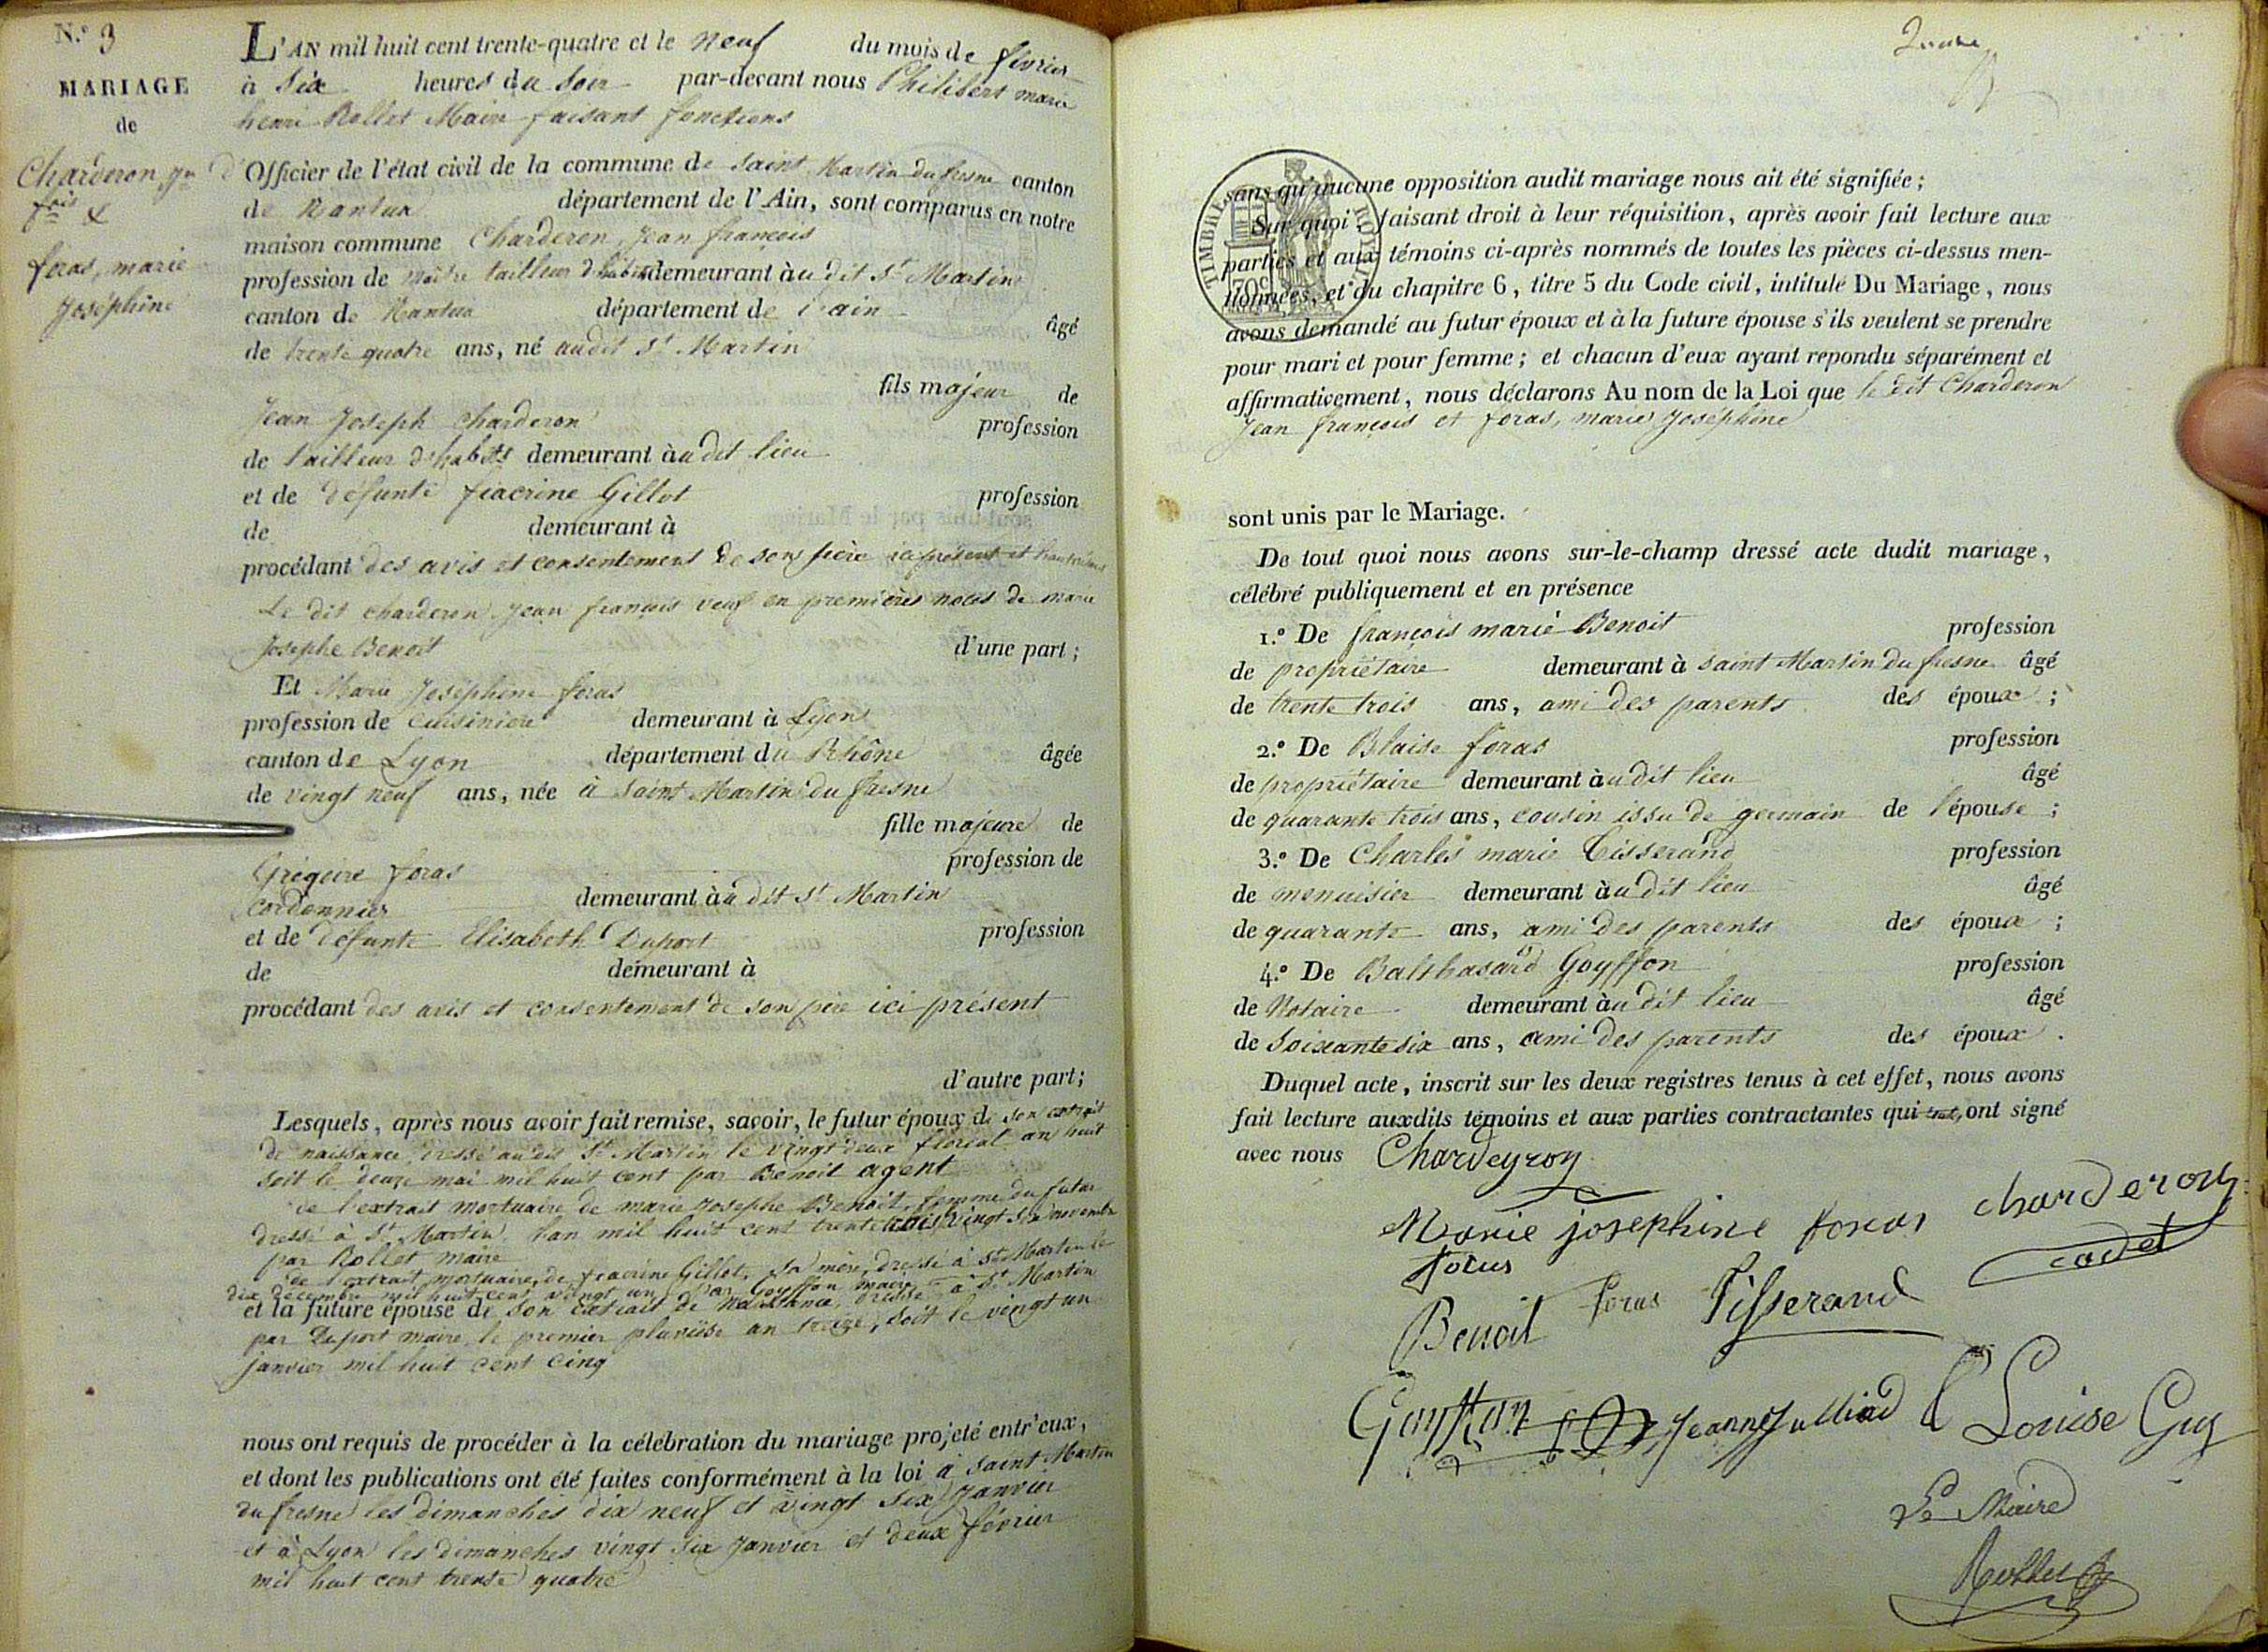 N.º 3
MARIAGE
de
Charderon, Jn
fois &
foras, marie
Joséphine
L'AN mil huit cent trente-quatre et le neuf du mois de février
à Six heures du Soir par-devant nous Philibert marie
henri Rollet Maire faisant fonctions
d'Officier de l'état civil de la commune de Saint Martin du fresne canton
de Nantua département de l'Ain, sont comparus en notre
maison commune Charderon, Jean françois
profession de maître tailleur d'habits demeurant àu dit St Martin
canton de Nantua département de l'ain âgé
de trente quatre ans, né audit St Martin
fils majeur de
Jean Joseph Charderon profession
de tailleur d'habits demeurant àu dit lieu
et de défunte fiacrine Gillot profession
de demeurant à
procédant des avis et consentement de son père ici présent et
Le dit charderon, Jean françois veuf en premières noces de marie
Josephe Benoit d'une part ;
Et Marie Joséphine foras
profession de Cuisinière demeurant à Lyon
canton de Lyon département du Rhône âgée
de vingt neuf ans, née à Saint Martin du fresne
fille majeure de
Grégoire foras profession de
cordonnier demeurant àu dit St Martin
et de défunte Elisabeth Duport profession
de demeurant à
procédant des avis et consentement de son père ici présent
d'autre part ;
Lesquels, après nous avoir fait remise, savoir, le futur époux de son extrait
de naissance, dressé au dit St Martin le vingt deux floréal an huit
soit le douze mai mil huit cent par Benoit agent
de l'extrait mortuaire de marie Josephe Benoit, femme du futur
dressé à St Martin, l'an mil huit cent trente trois vingt six novembre
par Rollet maire
de l'extrait mortuaire, de fiacrine Gillot, sa mère, dressé à St Martin le
dix décembre mil huit cent vingt un par Goyffon maire
et la future épouse de son extrait de naissance, dressé à St Martin
par Duport maire, le premier pluviôse an treize, soit le vingt un
janvier mil huit cent cinq
nous ont requis de procéder à la célebration du mariage projeté entr'eux,
et dont les publications ont été faites conformément à la loi à Saint Martin
du fresne les dimanches dix neuf et vingt six Janvier
et à Lyon les dimanches vingt six Janvier et deux février
mil huit cent trente quatre
TIMBRE ROYAL
70c
sans qu'aucune opposition audit mariage nous ait été signifiée ;
Sur quoi faisant droit à leur réquisition, après avoir fait lecture aux
parties et aux témoins ci-après nommés de toutes les pièces ci-dessus men-
tionnées, et du chapitre 6, titre 5 du Code civil, intitulé Du Mariage, nous
avons demandé au futur époux et à la future épouse s'ils veulent se prendre
pour mari et pour femme ; et chacun d'eux ayant repondu séparément et
affirmativement, nous déclarons Au nom de la Loi que le dit Charderon
Jean françois et foras, marie Joséphine
sont unis par le Mariage.
De tout quoi nous avons sur-le-champ dressé acte dudit mariage,
célébré publiquement et en présence
1.º De françois marie Benoit profession
de propriétaire demeurant à Saint Martin du fresne âgé
de trente trois ans, ami des parents des époux ;
2.º De Blaise foras profession
de propriétaire demeurant àu dit lieu âgé
de quarante trois ans, cousin issu de germain de l'épouse ;
3.º De Charles marie Tisserand profession
de menuisier demeurant àu dit lieu âgé
de quarante ans, ami des parents des époux ;
4.º De Balthasard Goyffon profession
de Notaire demeurant àu dit lieu âgé
de Soixante six ans, ami des parents des époux .
Duquel acte, inscrit sur les deux registres tenus à cet effet, nous avons
fait lecture auxdits témoins et aux parties contractantes qui ont signé
avec nous Chardeyron
Marie josephine foras charderon
foras cadet
Benoit foras Tisserand
Goyffon Jeanne Julliard L Louise Guy
Le Maire
Rollet